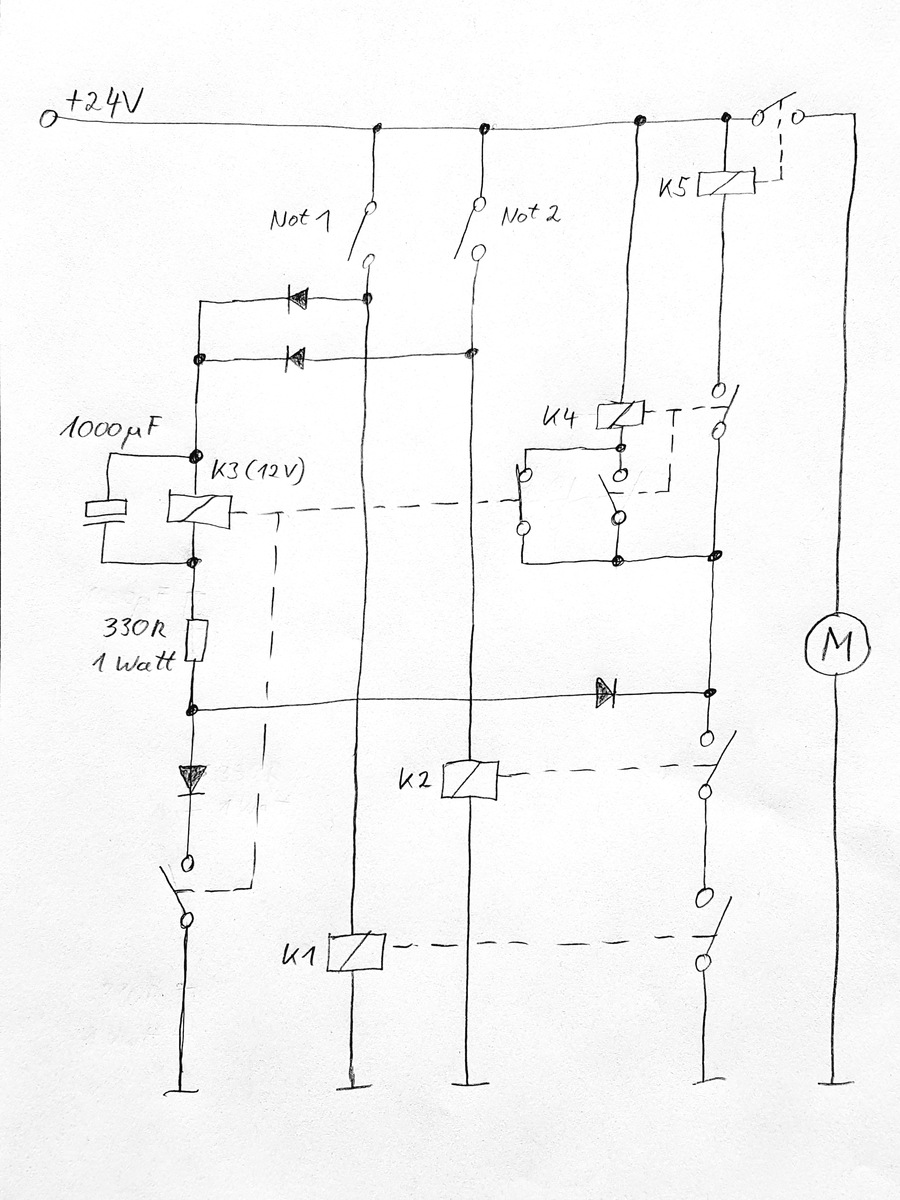 +24V
K5
Not 1
Not 2
1000µF
K4
K3 (12V)
330R
1 Watt
M
K2
K1